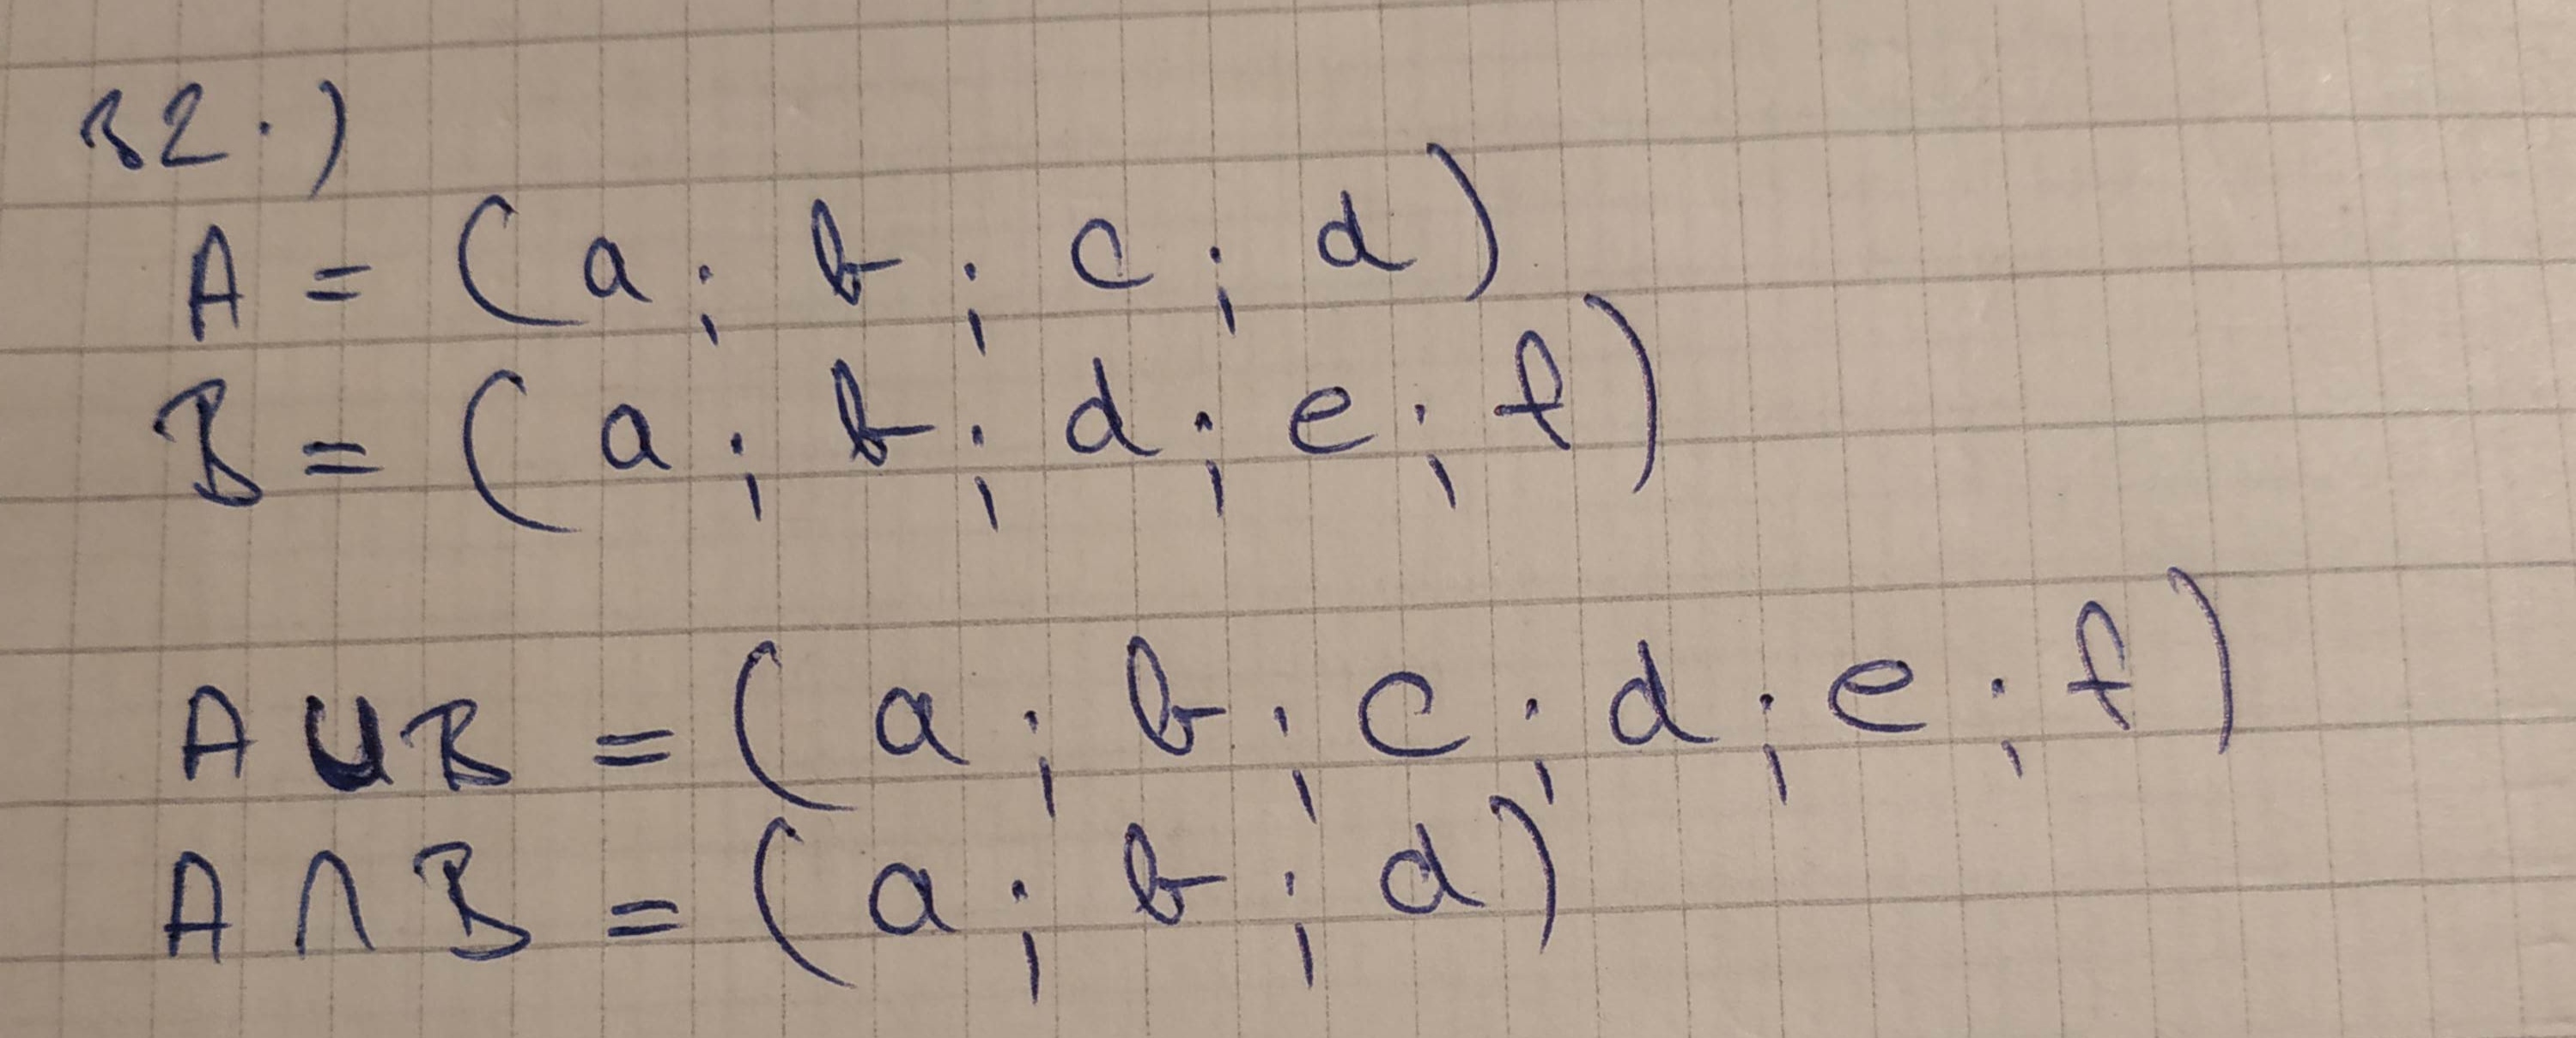 32.)
A = (a ; b ; c ; d)
B = (a ; b ; d ; e ; f)
A ∪ B = (a ; b ; c ; d ; e ; f)
A ∩ B = (a ; b ; d)